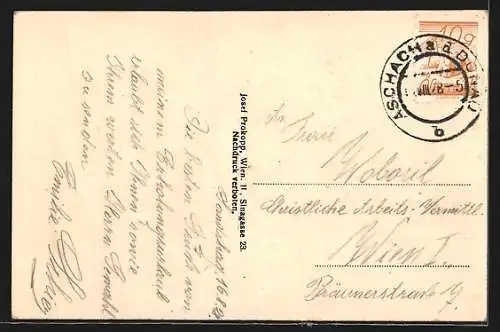 Aschach, 16.8.28
Die besten Grüße von
meinem Erholungsurlaub
erlaubt sich Ihnen sowie
Ihrem werten Herrn Gemahl
zu senden
Familie
Josef Prokopp, Wien, II. Sinagasse 23.
Nachdruck verboten.
10g
ASCHACH a. d. DONAU
b
Frau
Woboril
Christliche Arbeits-Vermittl.
Wien I.
Bräunerstrasse 9